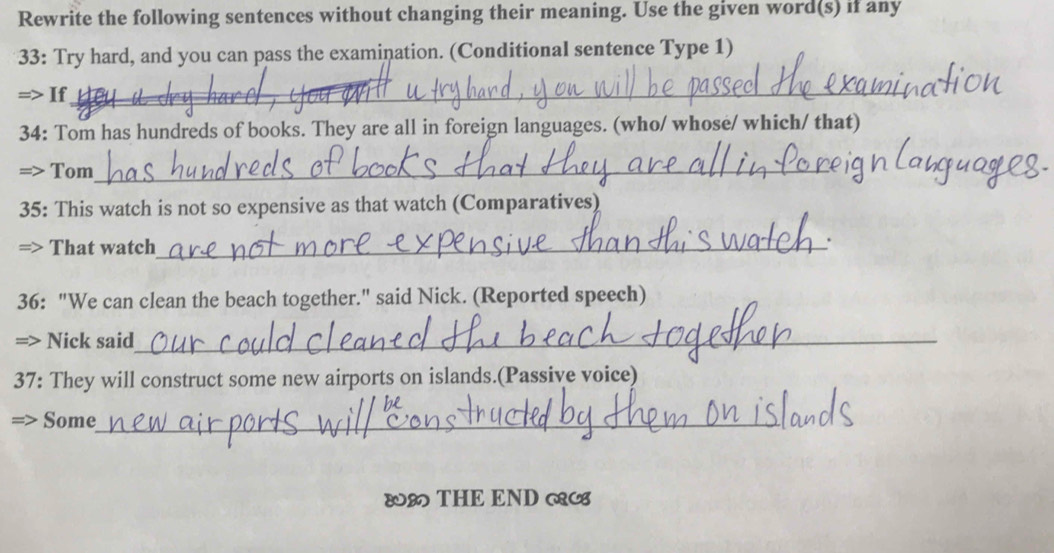 Rewrite the following sentences without changing their meaning. Use the given word(s) if any
33: Try hard, and you can pass the examination. (Conditional sentence Type 1)
=> If you u try hard, you will u try hard, you will be passed the examination
34: Tom has hundreds of books. They are all in foreign languages. (who/ whose/ which/ that)
=> Tom has hundreds of books that they are all in foreign languages.
35: This watch is not so expensive as that watch (Comparatives)
=> That watch are not more expensive than this watch.
36: "We can clean the beach together." said Nick. (Reported speech)
=> Nick said our could cleaned the beach together
37: They will construct some new airports on islands.(Passive voice)
=> Some new airports will be constructed by them on islands
THE END